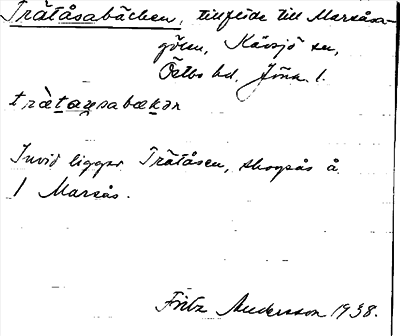 Trätåsabäcken, tillflöde till Marsåsa-
gölen, Kävsjö sn,
Östbo hd. Jönk. l.
Invid ligger Trätåsen, skogsås å
1 Marsås.
Fritz Andersson 1938.